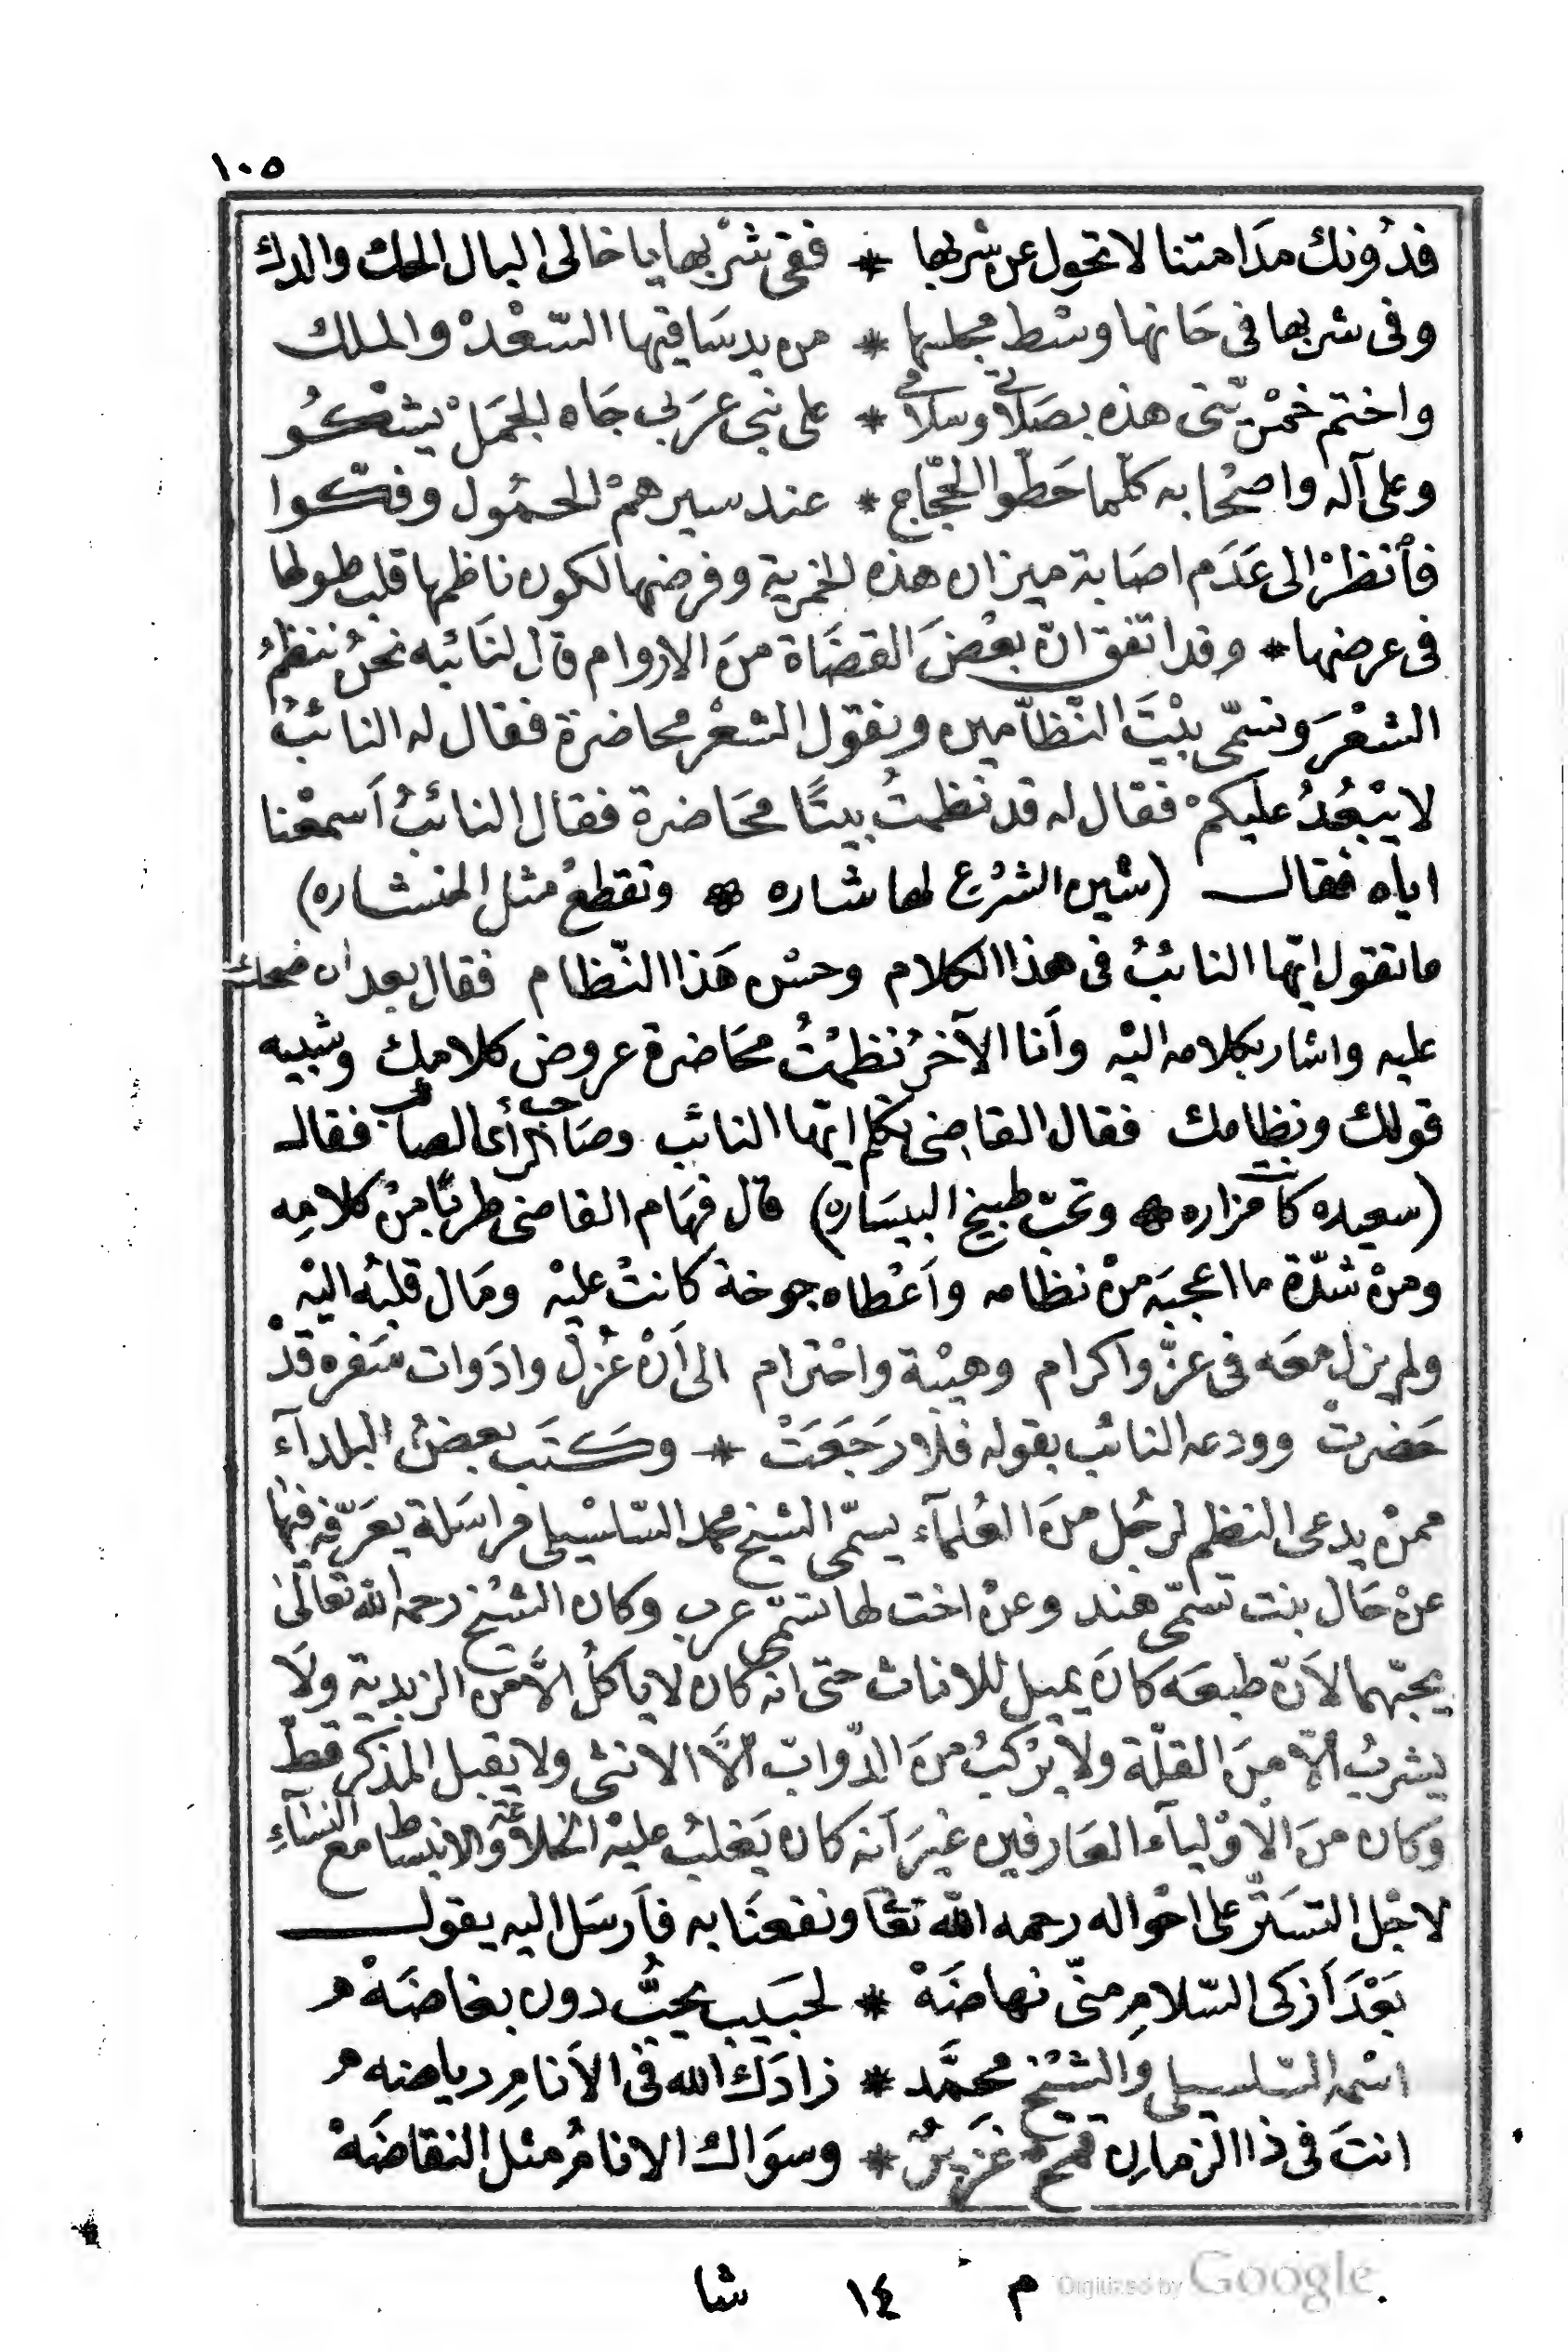 ١٠٥
فدُونك مدَامتنا لا تحوِل عن شربها * ففى شرْبها يا خالى البال الحك والدك
وفى شربها فى حَانها وسْط مجلسها * من يد سَاقيها السّعْدْ والملك
واختم خمْريّتى هذه بصَلاتى وسلامى * على نبى عرَبى جَاه الجمَلْ يشْكُو
وعلى آله واصْحابه كلّما حَطّوا الحجّاج * عند سيرهمْ الحمُول وفكّوا
فٱنظرْ الى عَدَم اصَابة ميزان هذه الخمرية وفرضها لكون ناظمها قلب طولها
فى عرضها * وقد اتفق انّ بعْضَ القضَاة منَ الاروام قال لنَائبه نحنُ ننظمُ
الشعْرَ ونسَمّى بيْتَ النّظّامين ونقول الشعْر محاضرة فقال له النائبُ
لا يبْعُدُ عليكمْ فقال له قد نظمتُ بيتًا محَاضرة فقال النائبُ اَسمعْنا
اياه فقال (شين الشرْع لها شاره ❁ وتقطعُ مثل المنشاره)
ما تقول ايّها النائبُ فى هذا الكلام وحسْن هَذا النّظام فقال بعد ان ضحك
عليه واشار بكلامه اليْه وأنا الآخرُ نظمْتُ محَاضرة عروض كلامك وشبيه
قولك ونظامك فقال القاضى تكلم ايّها النائب وصَاحب الرأى الصائب فقال
(سعيده كانت مزاره ❁ وتحبّ طبيخ البيسَاره) قال فهَام القاضى طربًا منْ كلامِه
ومنْ شدّة ما اعجبَه منْ نظامه وأعْطاه جوخة كانتْ عليْه ومَال قلبُه اليْه
ولم يزل معَه فى عزّ واكرام وهيْبة واحْترام الى اَنْ عُزِلْ وادَوات سَفره قدْ
حَضرتْ وودعه النائب بقوله فلا رجَعَتْ * وكتَب بعضُ البلدآء
ممنْ يدعى النظم لرجُل منَ العُلمآء يسمّى الشيخ محمد السّلسْبيلى مراسَلة يعَرّفه فيها
عنْ حَال بنت تسمّى هند وعنْ اخت لها تسمّى عرب وكان الشيْخ رحمه الله تعَالى
يحبّهما لاَنّ طبعَه كانَ يميل للاناث حتى انه كان لا ياكلُ الاَّ من الزبدية ولاَ
يشربُ الاّ منَ القلّة ولا يرْكبُ منَ الدّوابّ الاَّ الانثى ولا يقبل المذكر قطّ
وَكان منَ الاوْليآء العَارفين غيْرَ اَنه كان يَغلبُ عليْه الخلاعة والانبساط مع النسَآءِ
لاجْل التسَتّر على احْواله رحمه الله تعا ونفعنَا به فاَرسَل اليه يقول
بَعْدَ اَزكى السّلامِ منّى نهاضَهْ * لحبَيب يحِبُّ دون بغاضَهْ
اسْمه السّلسبيلى والشيْخ محمَّد * زادَك الله فى الاَنامِ رياضه
انتَ فى ذا الزمان قمْحٌ غزيرٌ * وسوَاك الانامُ مثل النقاضَهْ
م ١٤ شا
Digitized by Google